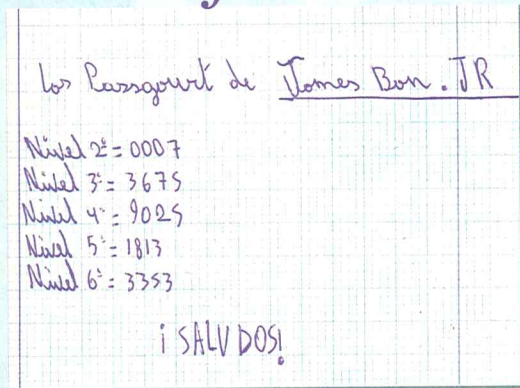 los Passgourt de James Bon. JR
Nivel 2º = 0007
Nivel 3º = 3675
Nivel 4º = 9025
Nivel 5º = 1813
Nivel 6º = 3353
¡SALUDOS!